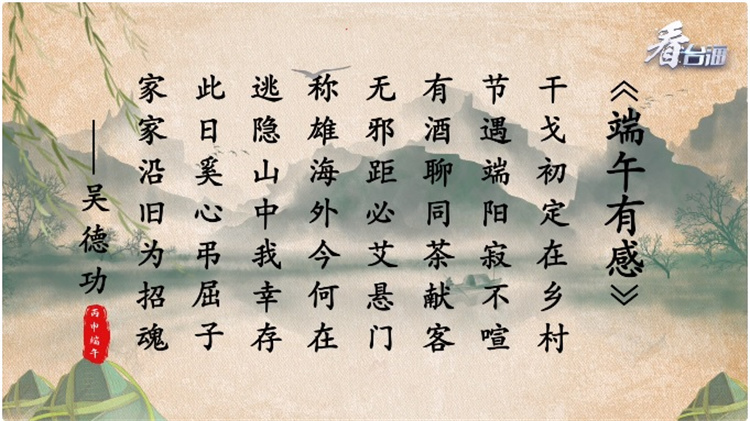 看台海
《端午有感》
干戈初定在乡村
节遇端阳寂不喧
有酒聊同茶献客
无邪距必艾悬门
称雄海外今何在
逃隐山中我幸存
此日奚心弔屈子
家家沿旧为招魂
——吴德功
丙申端午